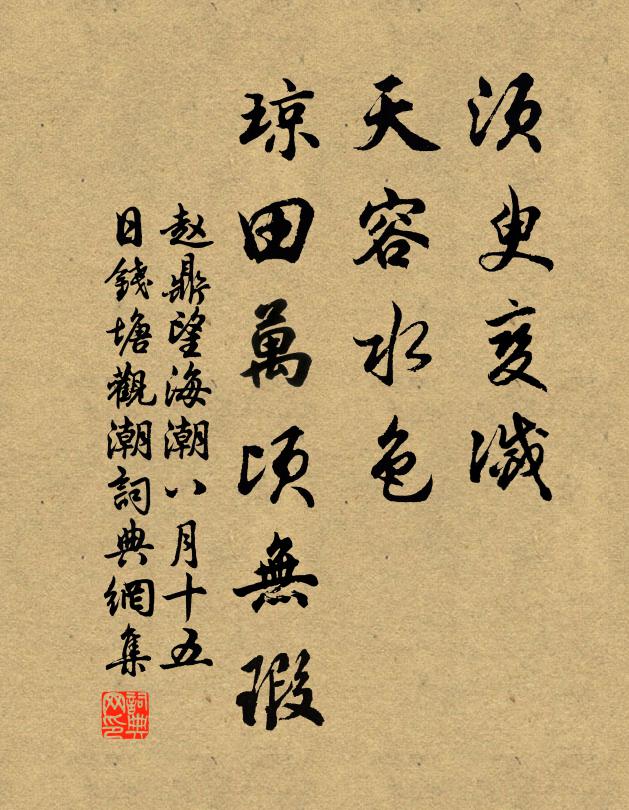 须臾变灭
天容水色
琼田萬顷無瑕
赵鼎望海潮八月十五
日錢塘觀潮詞典網集
詞典网印